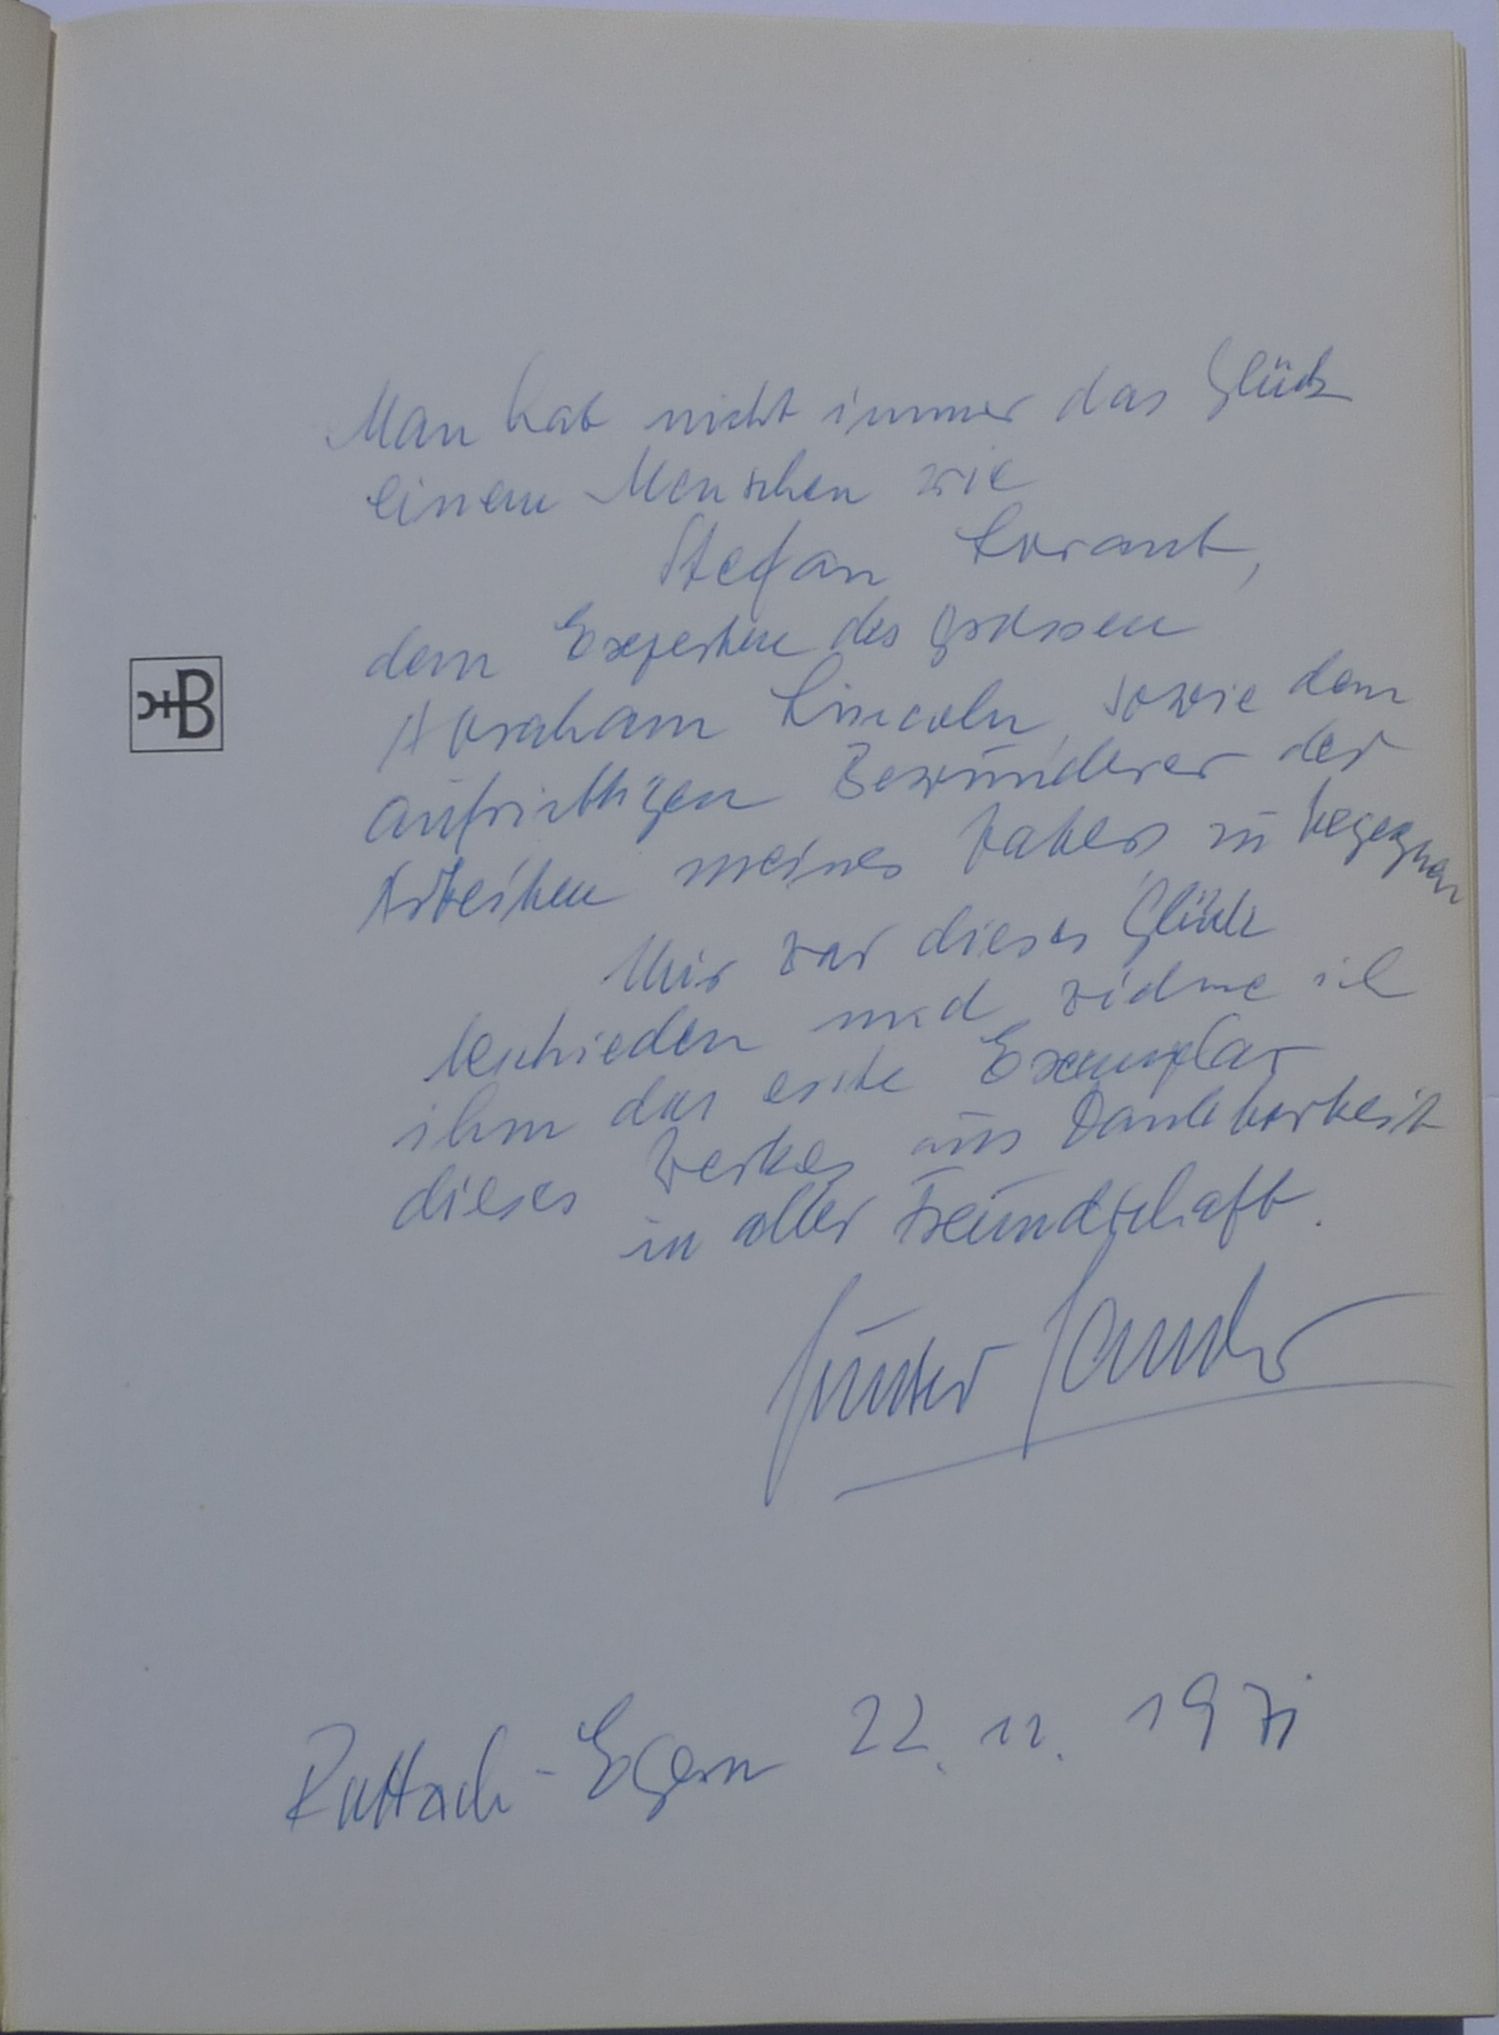 Man hat nicht immer das Glück
einem Menschen wie
Stefan Lorant,
dem Experten des grossen
Abraham Lincoln, sowie dem
aufrichtigen Bewunderer der
Arbeiten meines Vaters zu begegnen
Mir war dieses Glück
beschieden und widme ich
ihm das erste Exemplar
dieses Werkes aus Dankbarkeit
in aller Freundschaft.
Günther Sander
Rottach-Egern 22. 11. 1971
B